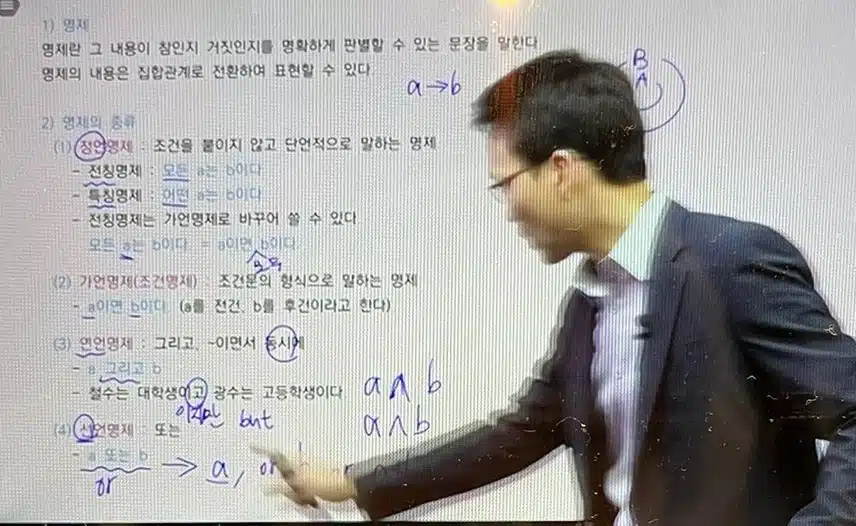 1) 명제
명제란 그 내용이 참인지 거짓인지를 명확하게 판별할 수 있는 문장을 말한다
명제의 내용은 집합관계로 전환하여 표현할 수 있다
a→b
B
A
2) 명제의 종류
(1) 정언명제 : 조건을 붙이지 않고 단언적으로 말하는 명제
- 전칭명제 : 모든 a는 b이다
- 특칭명제 : 어떤 a는 b이다
- 전칭명제는 가언명제로 바꾸어 쓸 수 있다
모든 a는 b이다 = a이면 b이다
(2) 가언명제(조건명제) : 조건문의 형식으로 말하는 명제
- a이면 b이다 (a를 전건, b를 후건이라고 한다)
(3) 연언명제 : 그리고, ~이면서 동시에
- a 그리고 b
- 철수는 대학생이고 광수는 고등학생이다 a∧b
이지만 but a∧b
(4) 선언명제 : 또는
- a 또는 b → a, or b
or